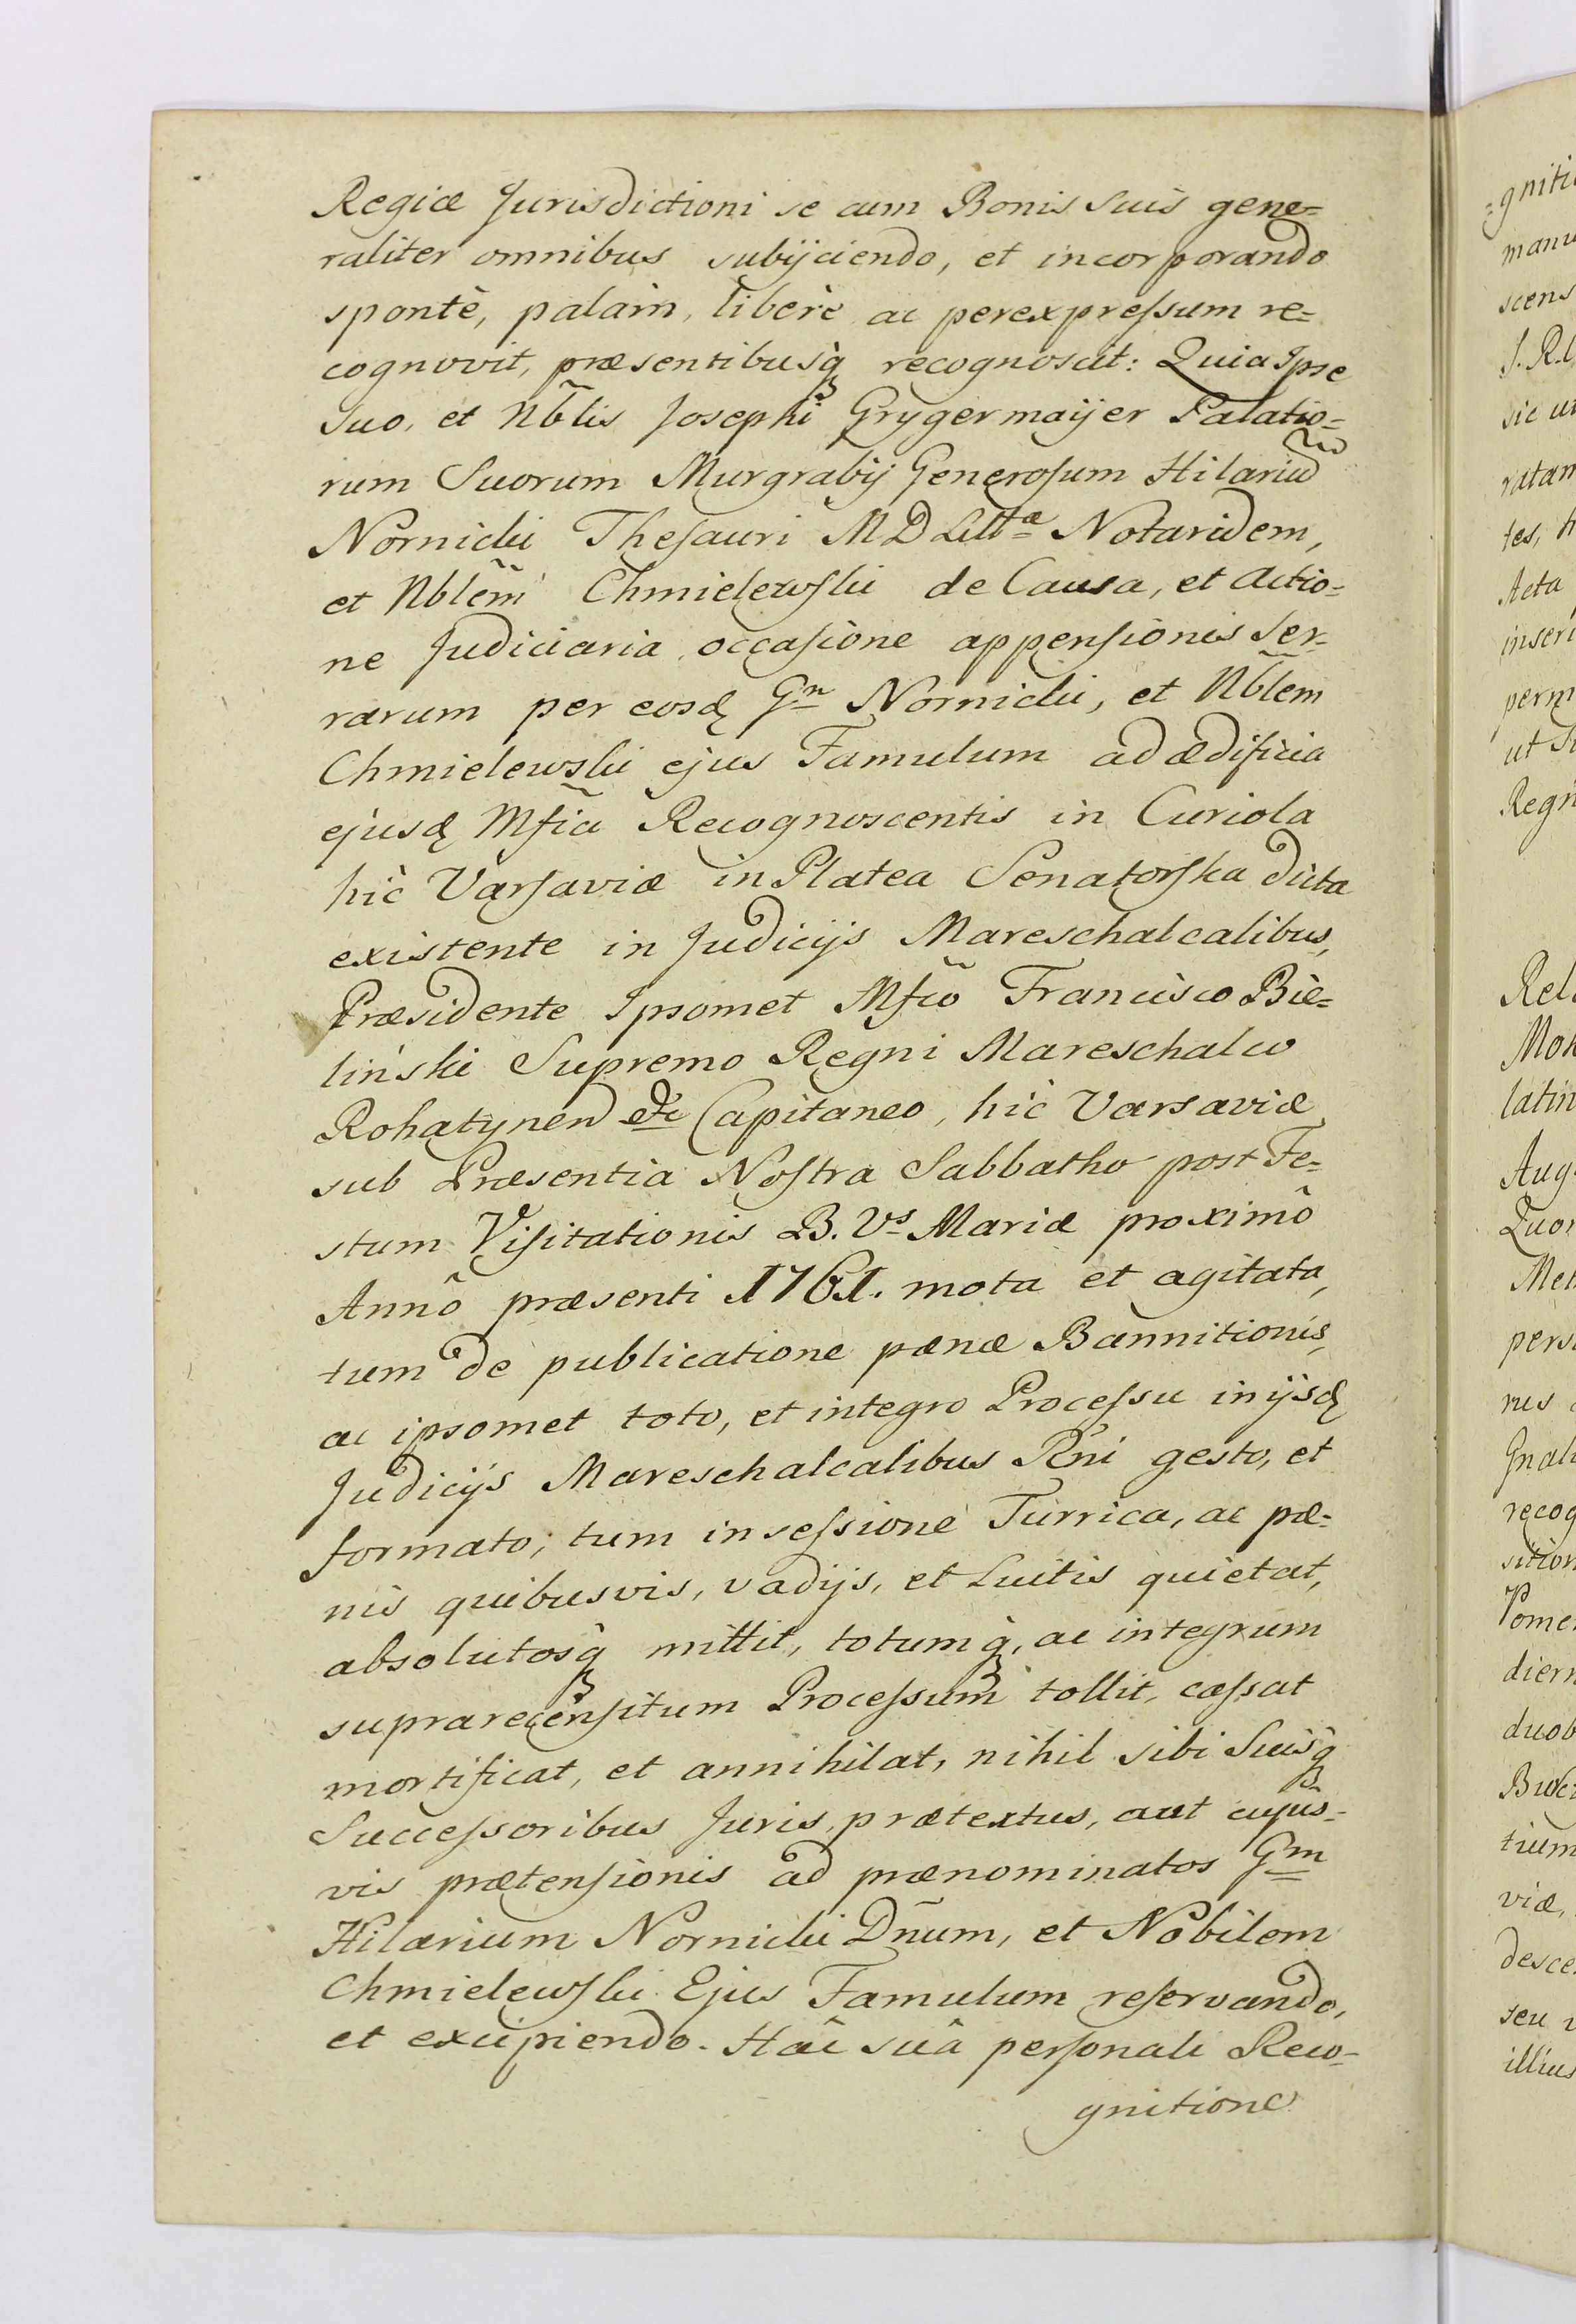 Regiæ Jurisdictioni se cum Bonis suis gene=
raliter omnibus subijciendo, et incorporando
spontè, palàm, liberè ac per expressum re=
cognovit, præsentibusq̀ recognoscit: Quia Ipse
suo, et Nb̃lis Josephi Grygermaijer Palatio=
rum Suorum Murgrabij Generosum Hilariũ
Nornicki Thesauri M D Litt͟æ Notaridem,
et Nblẽm Chmielewski de Causa, et Actio=
ne Judiciaria occasione appensionis Ser=
rarum per eosd Gn Nornicki, et Nb̃lem
Chmielewski ejus Famulum ad ædificia
ejusd Mfici Recognoscentis in Curiola
hic Varsaviæ in Platea Senatorska dicta
existente in Judicijs Mareschalcalibus,
Præsidente Ipsomet Mfcõ Francisco Bie=
liński Supremo Regni Mareschalco
Rohatynen &c Capitaneo, hic Varsaviæ
sub Præsentia Nostra Sabbatho post Fe=
stum Visitationis B. Vs Mariæ proximô
Annô præsenti 1761. mota et agitata,
tum de publicatione pænæ Bannitionis,
ac ipsomet toto, et integro Processu in ijsd
Judicijs Mareschalcalibus Rñi gesto, et
formato; tum in sessione Turrica, ac pæ=
nis quibusvis, vadijs, et Luitis quietat,
absolutosq̀ mittit, totumq̀, ac integrum
suprarecensitum Processum tollit, cæssat
mortificat, et annihilat, nihil sibi Suisq̀
Successoribus Juris, prætextus, aut cujus=
vis prætensionis ad prænominatos Gm
Hilarium Nornicki Dñum, et Nobilem
Chmielewski Ejus Famulum reservando,
et excipiendo. Hâc suâ personali Reco=
gnitione
=gniti
manu
scens
S. R.
sic u
ratam
tes, h
Acta
inseri
perm
ut S
Regn
Rel
Mon
latin
Aug
Quor
Met
pers
rus
Gnali
recog
sition
Pome
diern
duob
tium
viæ,
desce
seu
illius